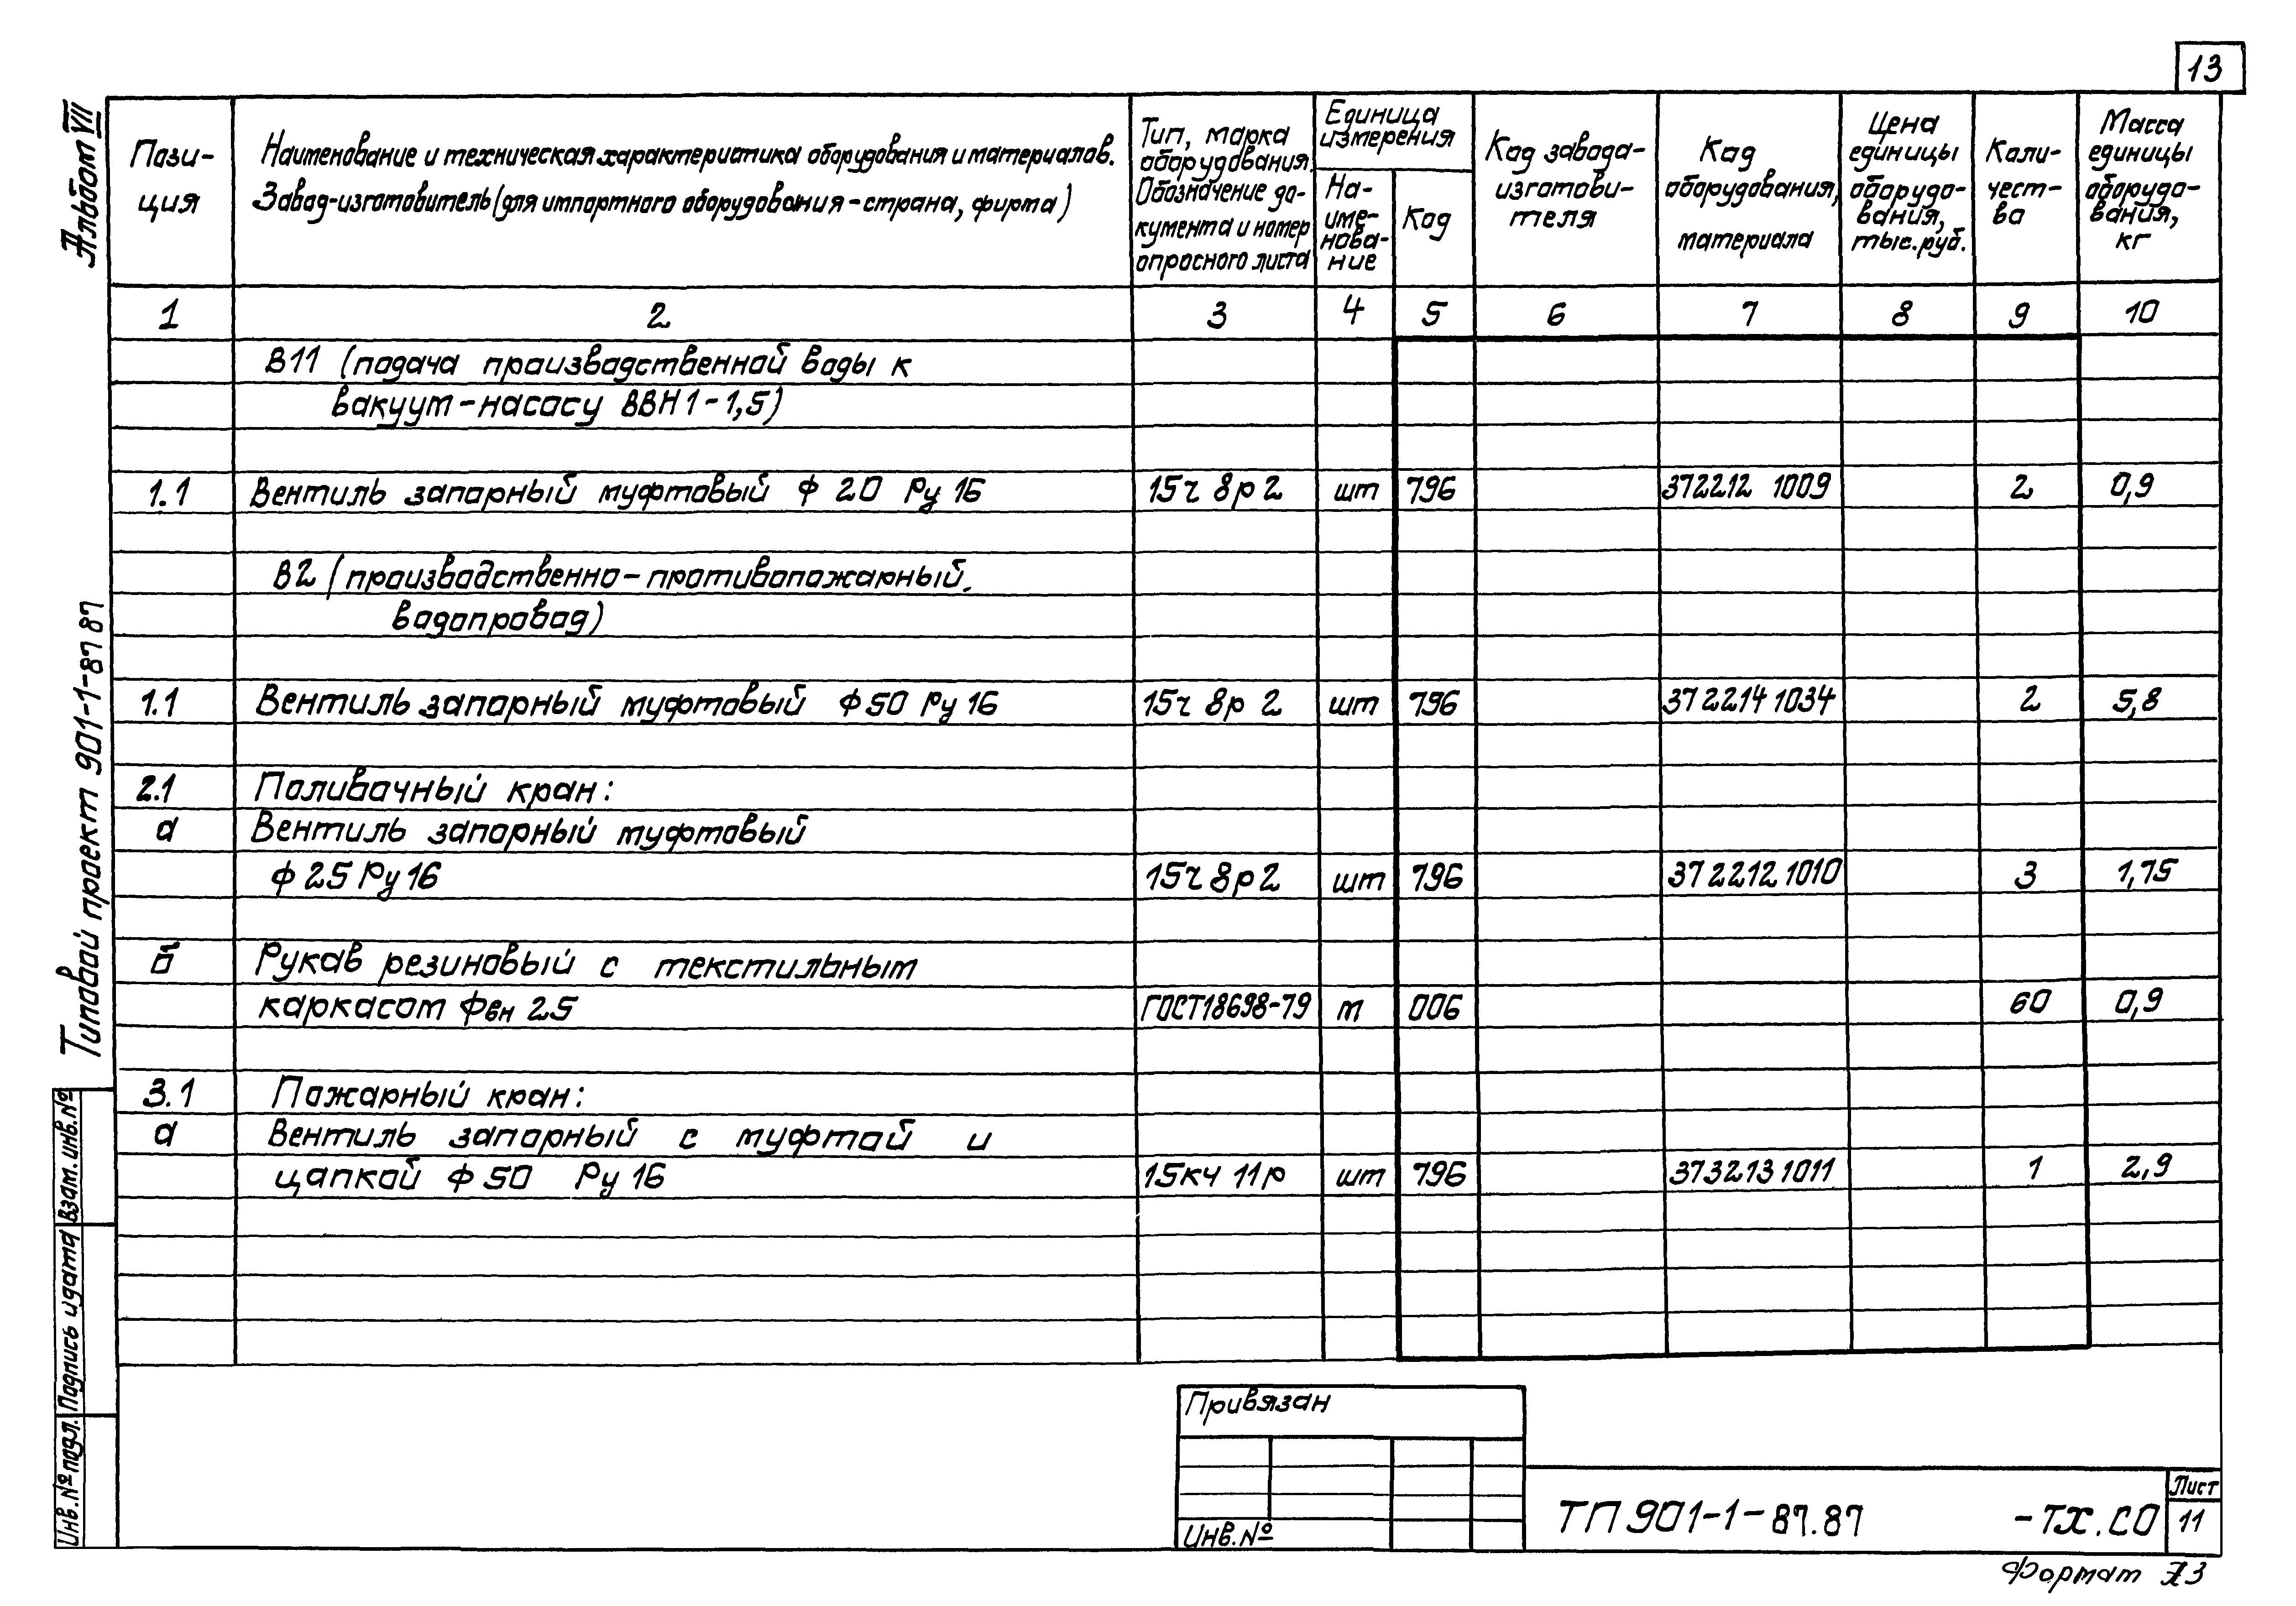 13
Альбом VII
Типовой проект 901-1-87 87
Взам. инв. №
Подпись и дата
Инв. № подл.
Пози-
ция
Наименование и техническая характеристика оборудования и материалов.
Завод-изготовитель (для импортного оборудования - страна, фирма)
Тип, марка
оборудования.
Обозначение до-
кумента и номер
опросного листа
Единица
измерения
На-
име-
нова-
ние
Код
Код завода-
изготови-
теля
Код
оборудования,
материала
Цена
единицы
оборудо-
вания,
тыс. руб.
Коли-
чест-
во
Масса
единицы
оборудо-
вания,
кг
1 2 3 4 5 6 7 8 9 10
В11 (подача производственной воды к
вакуум-насосу ВВН 1-1,5)
1.1 Вентиль запорный муфтовый ф 20 Ру 16 15ч 8р 2 шт 796 372212 1009 2 0,9
В2 (производственно-противопожарный.
водопровод)
1.1 Вентиль запорный муфтовый ф 50 Ру 16 15ч 8р 2 шт 796 372214 1034 2 5,8
2.1 Поливочный кран:
а Вентиль запорный муфтовый
ф 25 Ру 16 15ч 8р 2 шт 796 372212 1010 3 1,75
б Рукав резиновый с текстильным
каркасом Фвн 25 ГОСТ 18698-79 м 006 60 0,9
3.1 Пожарный кран:
а Вентиль запорный с муфтой и
цапкой ф 50 Ру 16 15кч 11р шт 796 373213 1011 1 2,9
Привязан
Инв. №
ТП 901-1-87.87 -ТХ.СО
Лист
11
Формат А3